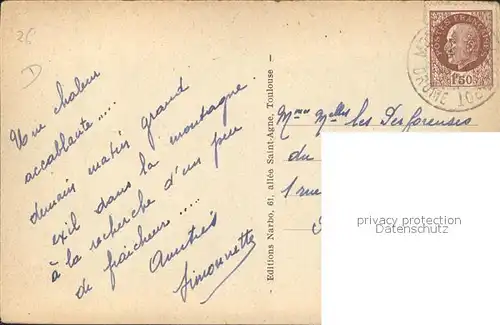 26
D
Une chaleur
accablante....
demain matin grand
exil dans la montagne
à la recherche d'un peu
de fraicheur.....
Amitiés
Simonnette
- Editions Narbo, 61, allée Saint-Agne, Toulouse -
POSTES FRANÇAISES
1F50
DRÔME
Mmes Melles les
du
1 rue
privacy protection
Datenschutz